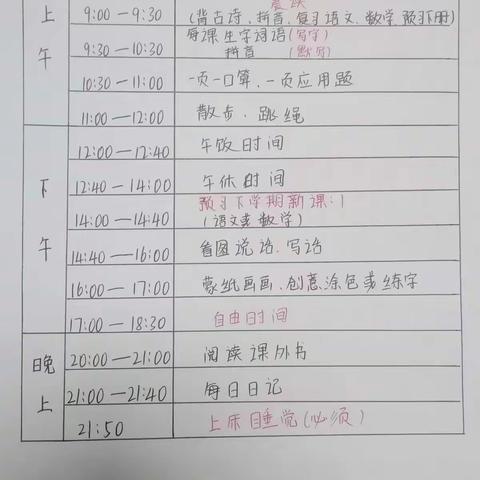 上午
9:00—9:30
晨读
(背古诗、拼音、复习语文、数学、预习下册)
9:30—10:30
每课生字词语(写字)
拼音 (默写)
10:30—11:00
一页口算、一页应用题
11:00—12:00
散步、跳绳
下午
12:00—12:40
午饭时间
12:40—14:00
午休时间
14:00—14:40
预习下学期新课:1
(语文或数学)
14:40—16:00
看图说话、写话
16:00—17:00
蒙纸画画、创意涂色或练字
17:00—18:30
自由时间
晚上
20:00—21:00
阅读课外书
21:00—21:40
每日日记
21:50
上床睡觉(必须)